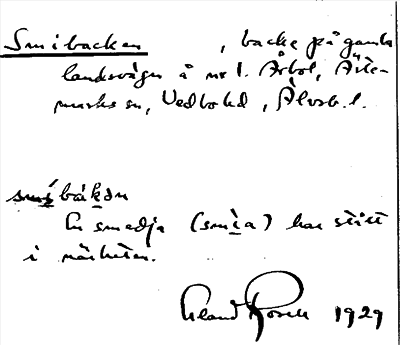 Smibacken , backe på gamla
landsvägen å nr 1. Årbol, Ärte-
marks sn, Vedbo hd, Älvsb. l.
smi̍bàkən
En smedja (smìa) har stått
i närheten.
Erland Rosell 1929